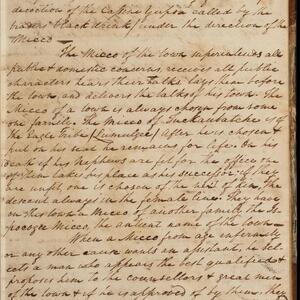 direction of the Cassine Yupon called by the
traders black drink, under the direction of the
Micco
The Micco of the town superintends all
public & domestic concerns, receives all public
characters, hears their talks, lays them before
the town and delivers the talks of his town. The
Micco of a town is always chosen from some
one family. The Micco of Tuckaubatche is of
the Eagle Tribe (Lumulgee) after he is chosen &
put on his seat he remains for life. On his
death if his Nephews are fit for the office one
of them takes his place as his successor; if they
are unfit, one is chosen of the next of kin, the
descent always in the female line. They have
in this town a Micco of another family the Is-
pocoge Micco, the antient name of the town
When a Micco from age infirmity
or any other cause wants an assistant, he sel-
ects a man who appears the best qualified &
proposes him to the counsellors & great men
of the town & if he is approved of by them, the